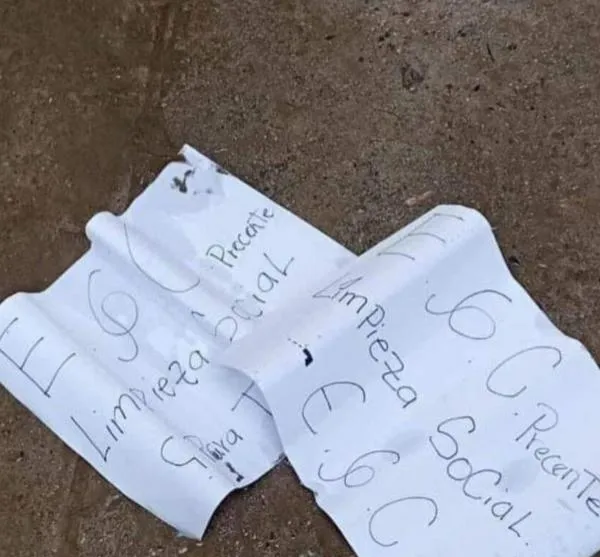 E G C Precente
Limpieza Social
Para T
E. G C. Precente
Limpieza Social.
E. G. C